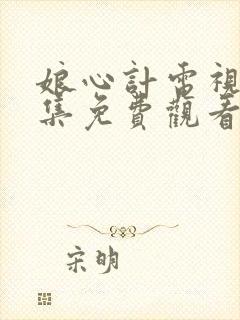 娘心計電視
集免費觀看
宋明